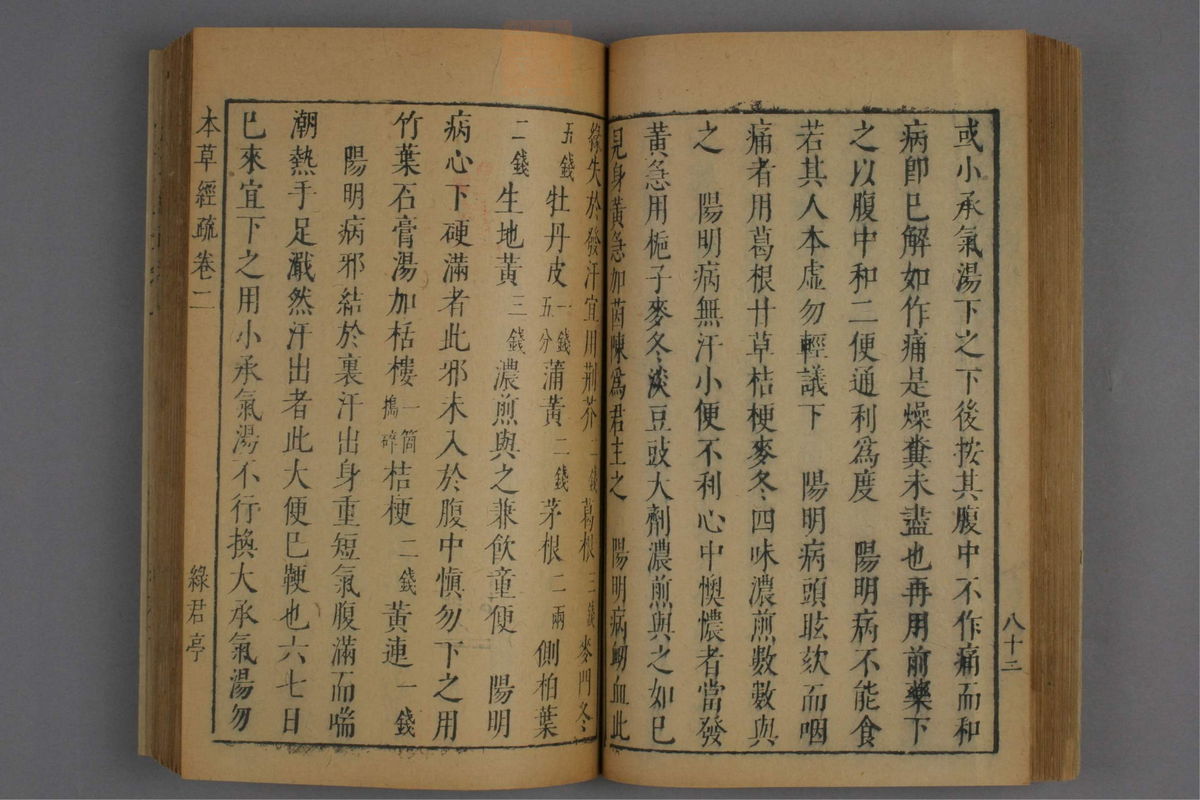 八十二
或小承氣湯下之下後按其腹中不作痛而和
病卽已解如作痛是燥糞未盡也再用前藥下
之以腹中和二便通利爲度　陽明病不能食
若其人本虛勿輕議下　陽明病頭眩欬而咽
痛者用葛根甘草桔梗麥冬四味濃煎數數與
之　陽明病無汗小便不利心中懊憹者當發
黃急用梔子麥冬淡豆豉大劑濃煎與之如已
見身黃急加茵蔯爲君主之　陽明病衂血此
緣失於發汗宜用荆芥二錢葛根三錢麥門冬
五錢牡丹皮一錢五分蒲黃二錢茅根二兩側柏葉
二錢生地黃三錢濃煎與之兼飮童便　陽明
病心下硬滿者此邪未入於腹中愼勿下之用
竹葉石膏湯加栝樓一箇搗碎桔梗二錢黃連一錢
陽明病邪結於裏汗出身重短氣腹滿而喘
潮熱手足濈然汗出者此大便已鞕也六七日
已來宜下之用小承氣湯不行換大承氣湯勿
本草經疏卷二
綠君亭